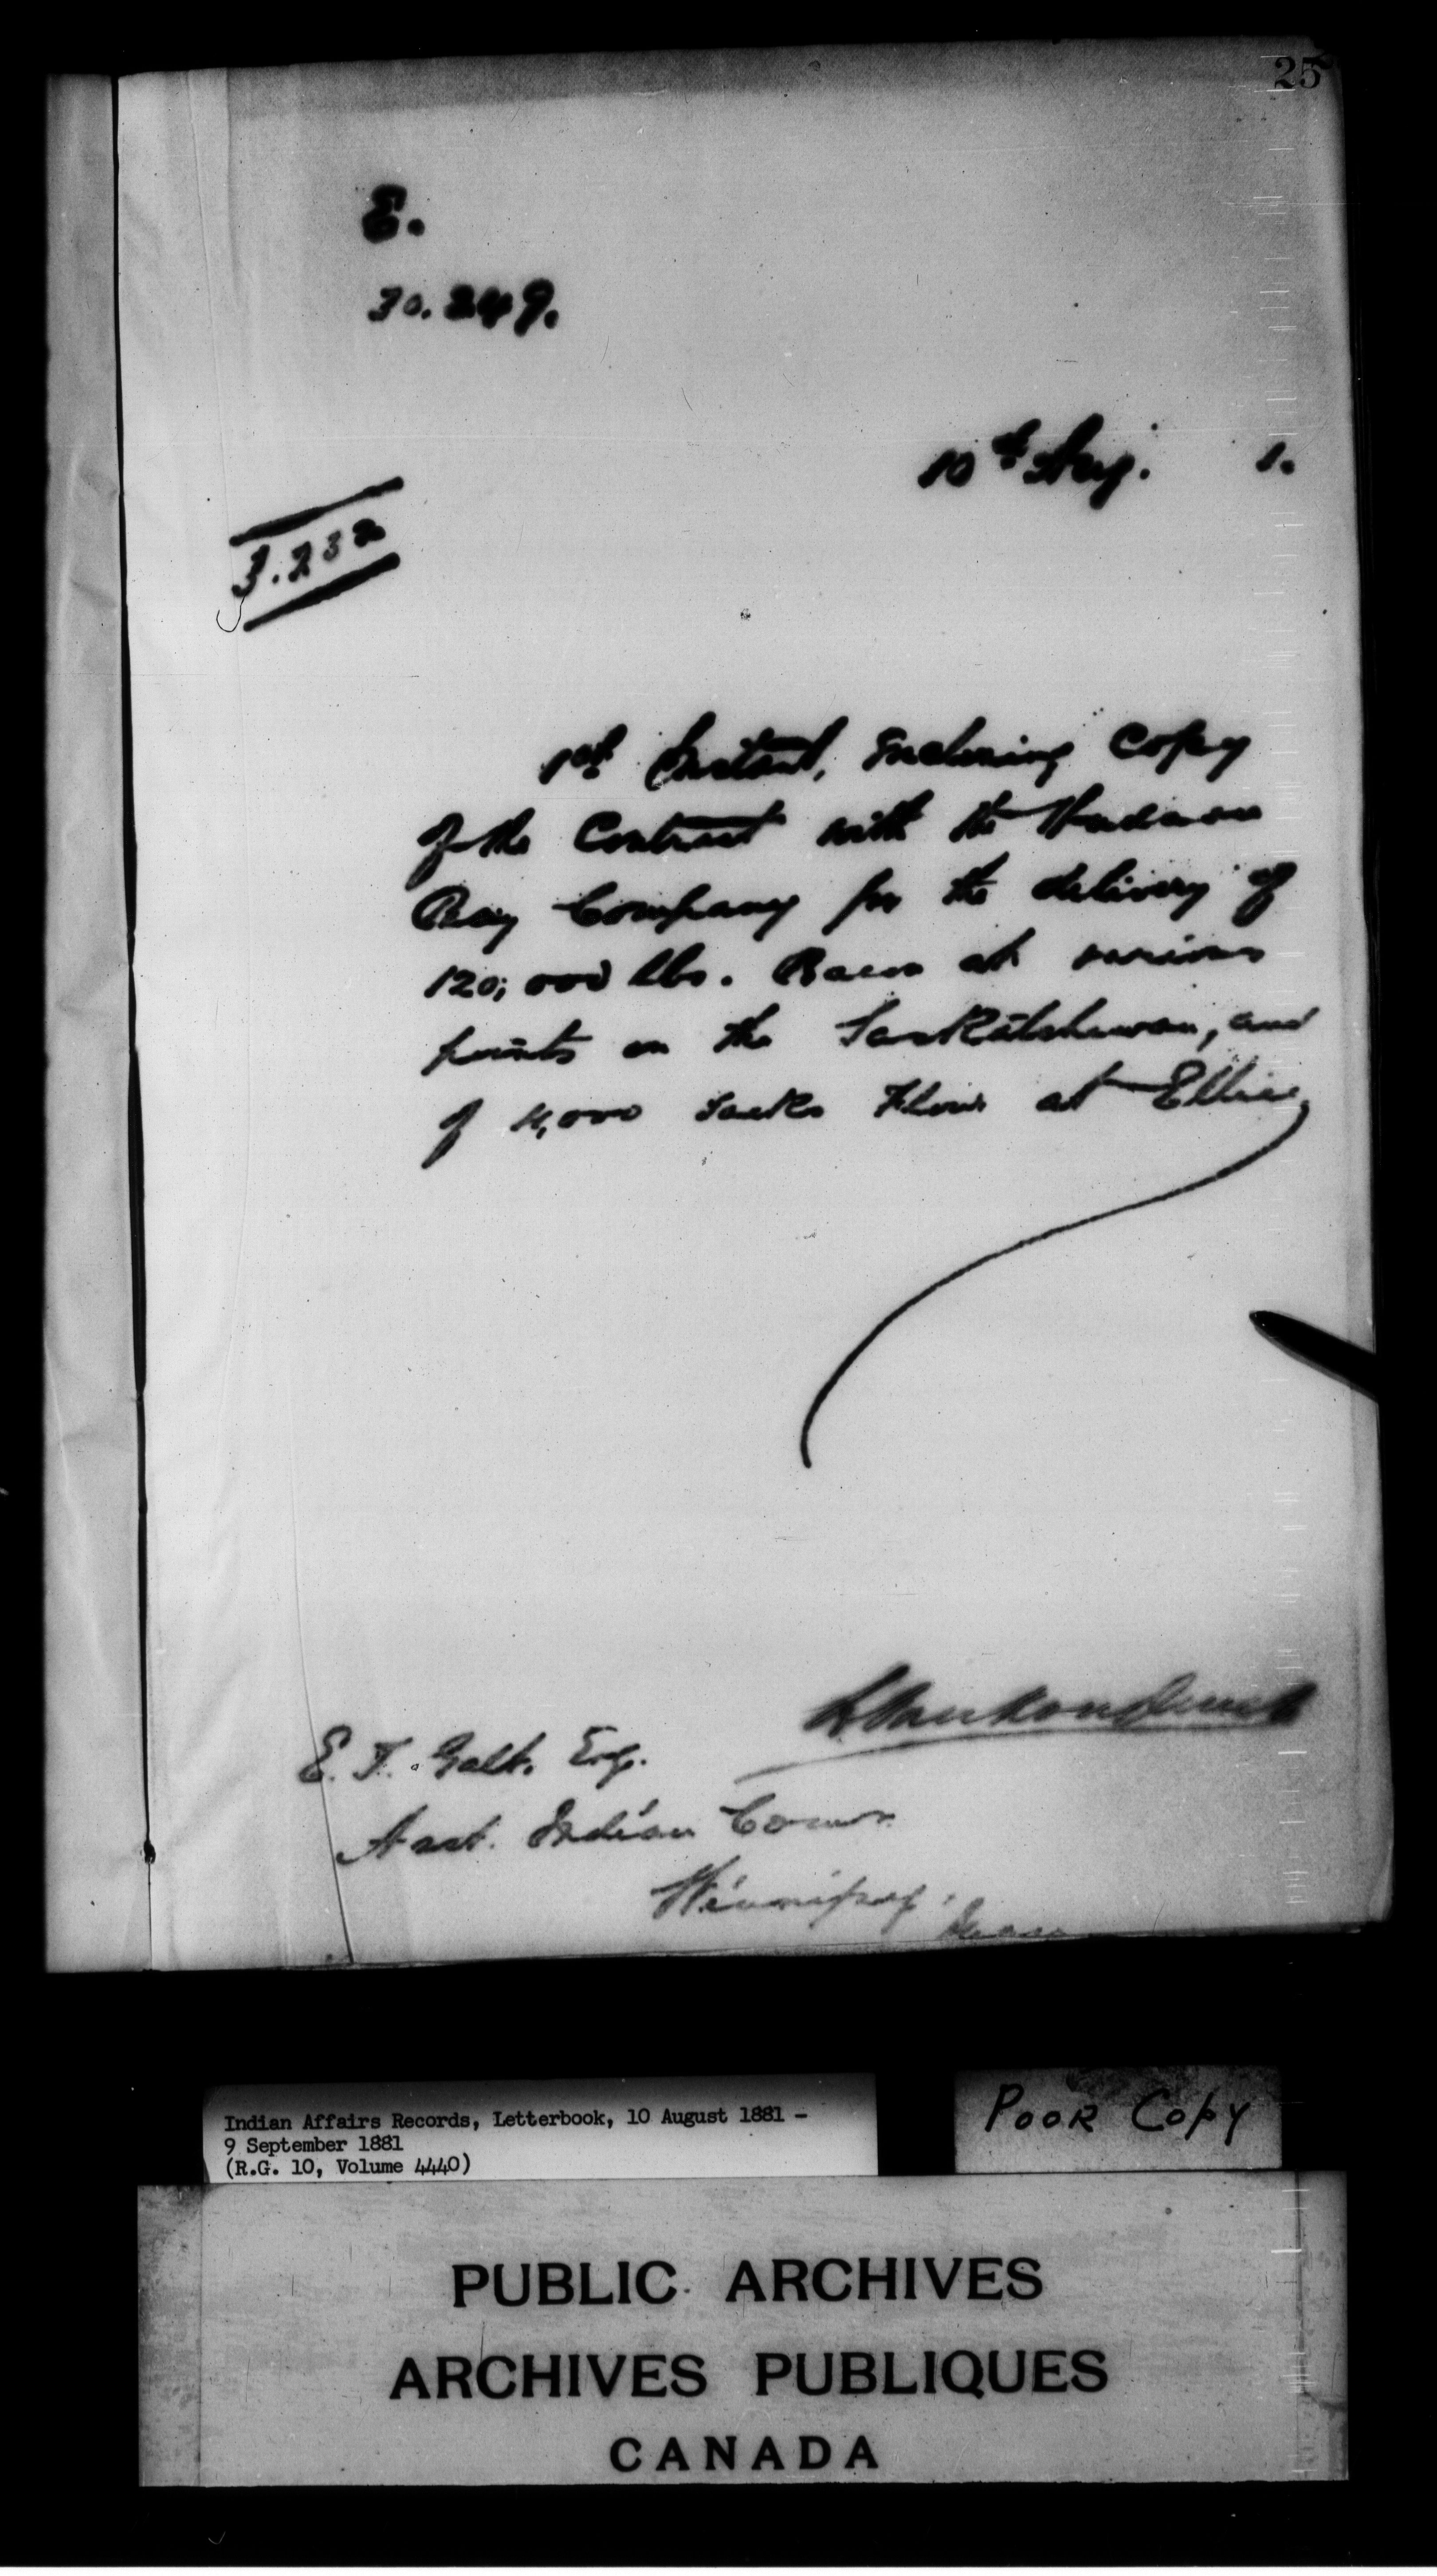 25
E.
30.249.
10th Aug. 1.
3.232
1st Instant, Enclosing Copy
of the Contract with the Hudson
Bay Company for the delivery of
120,000 lbs. Bacon at various
points on the Saskatchewan, and
of 4,000 sacks Flour at Ellice
L. Vankoughnet
E. T. Galt. Esq.
Asst. Indian Comr.
Winnipeg.
Indian Affairs Records, Letterbook, 10 August 1881 -
9 September 1881
(R.G. 10, Volume 4440)
POOR COPY
PUBLIC ARCHIVES
ARCHIVES PUBLIQUES
CANADA